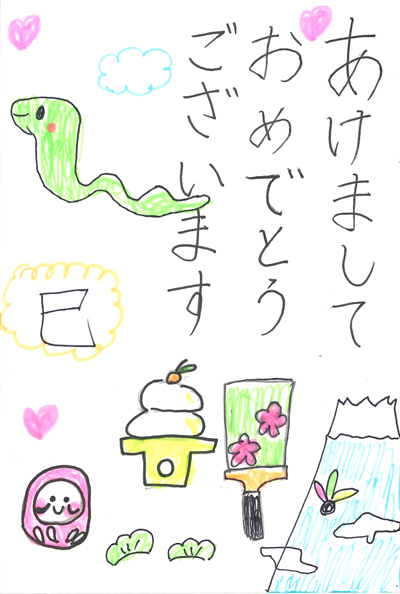 あけまして
おめでとう
ございます
巳